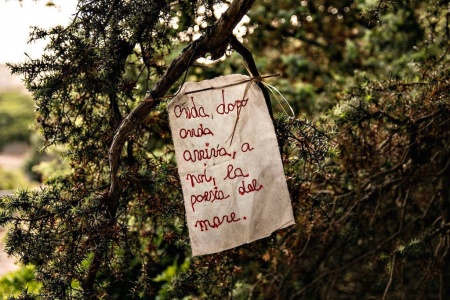 Onda, dopo
onda
arriva, a
noi, la
poesia del
mare.